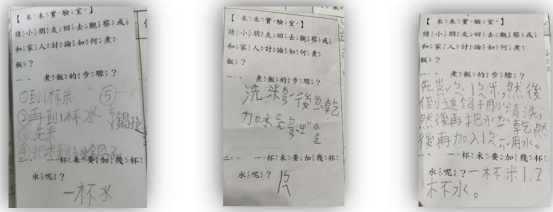 【米米實驗室】
請小朋友回去觀察或
和家人討論如何煮
飯?
一、煮飯的步驟?
①到1杯米 ⑤
②再到1杯水
③洗米
④把米到
二、一杯米要加幾杯
水呢?
一杯水
【米米實驗室】
請小朋友回去觀察或
和家人討論如何煮
飯?
一、煮飯的步驟?
洗米 後 乾
加水
二、一杯米要加幾杯
水呢?
【米米實驗室】
請小朋友回去觀察或
和家人討論如何煮
飯?
一、煮飯的步驟?
先 米,然後
倒進鍋 清洗,
然後再把水 乾,然
後再加入 水。
二、一杯米要加幾杯
水呢?一杯米1.2
杯水。